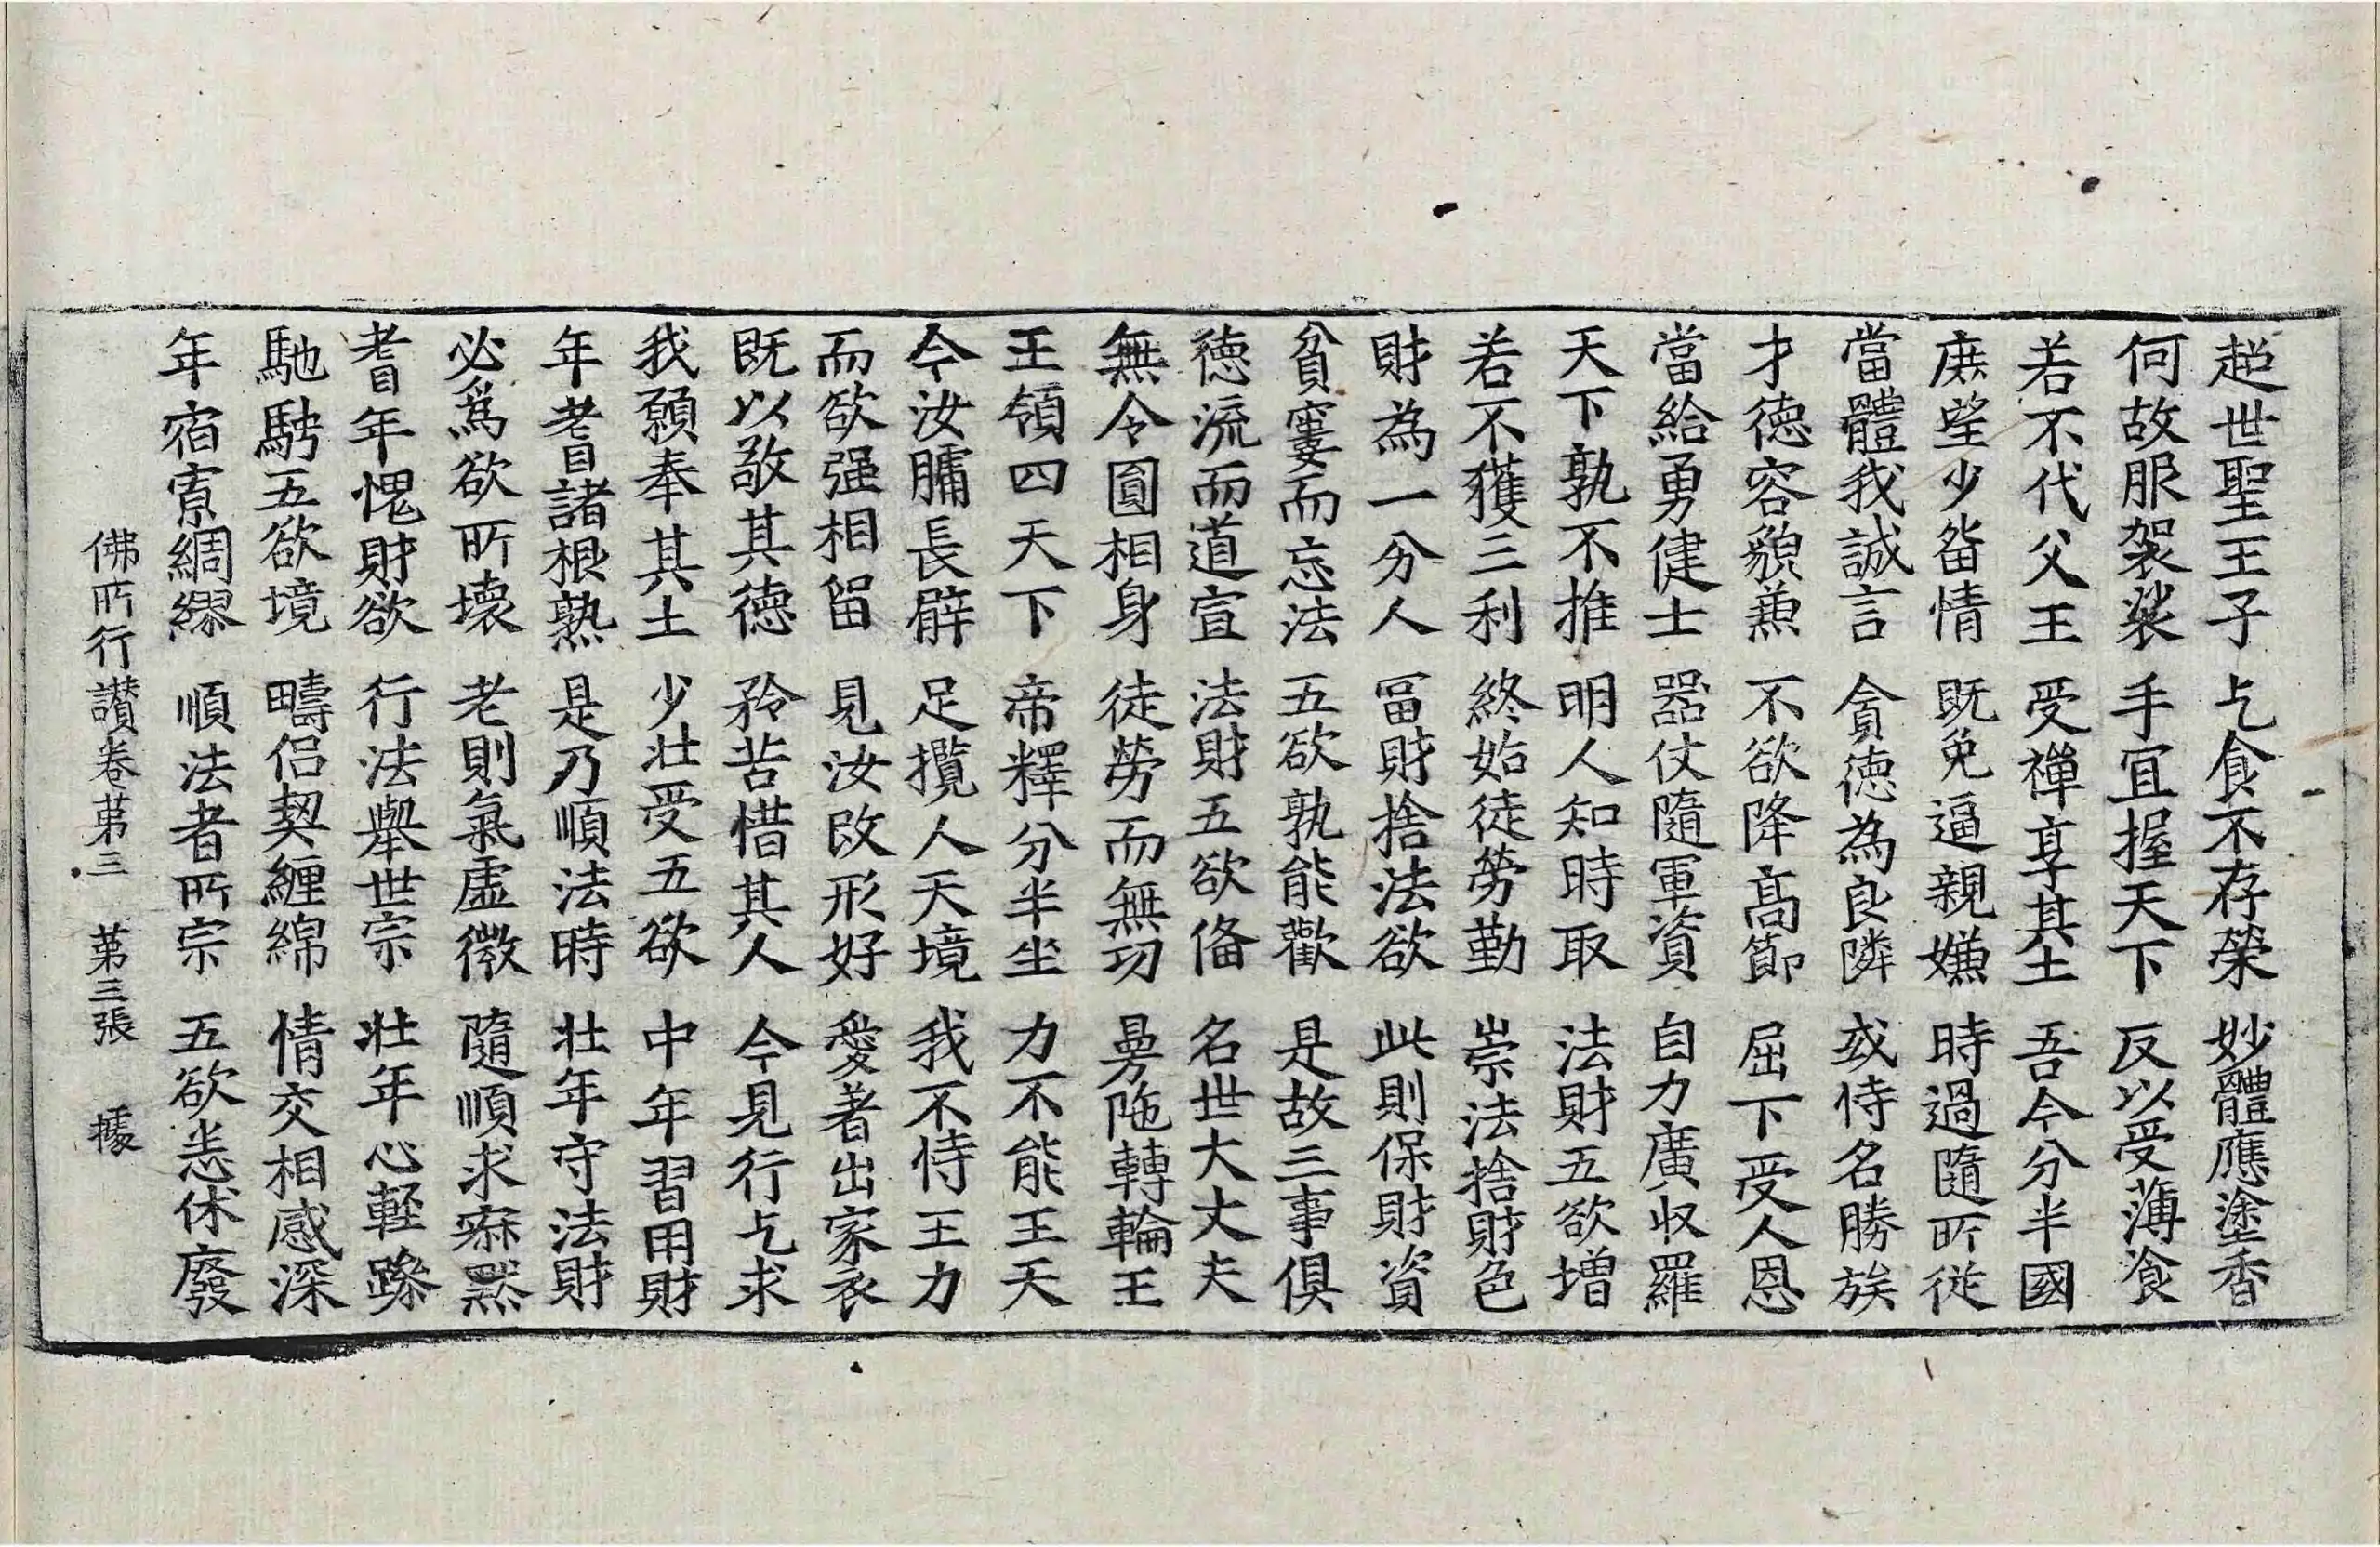 超世聖王子 乞食不存榮 妙體應塗香
何故服袈裟 手宜握天下 反以受薄飡
若不代父王 受禪享其土 吾今分半國
庶望少畱情 既免逼親嫌 時過隨所從
當體我誠言 貪德為良隣 或恃名勝族
才德容貌兼 不欲降高節 屈下受人恩
當給勇健士 器仗隨軍資 自力廣収羅
天下孰不推 明人知時取 法財五欲增
若不獲三利 終始徒勞勤 崇法捨財色
財為一分人 冨財捨法欲 此則保財資
貧窶而忘法 五欲孰能歡 是故三事俱
德流而道宣 法財五欲俻 名世大丈夫
無令圓相身 徒勞而無功 曼陁轉輪王
王領四天下 帝釋分半坐 力不能王天
今汝𦟛長臂 足攬人天境 我不恃王力
而欲强相留 見汝改形好 愛著出家衣
既以敬其德 矜苦惜其人 今見行乞求
我願奉其土 少壯受五欲 中年習用財
年耆諸根熟 是乃順法時 壯年守法財
必爲欲所壞 老則氣虛微 隨順求寂黙
耆年愧財欲 行法舉世宗 壯年心輕躁
馳騁五欲境 疇侣契纏綿 情交相感深
年宿寡綢繆 順法者所宗 五欲悉休廢
佛所行讃卷苐三 苐三張 據